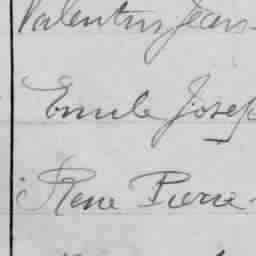 Valentin Jean-
Emile Josep
René Pierre-